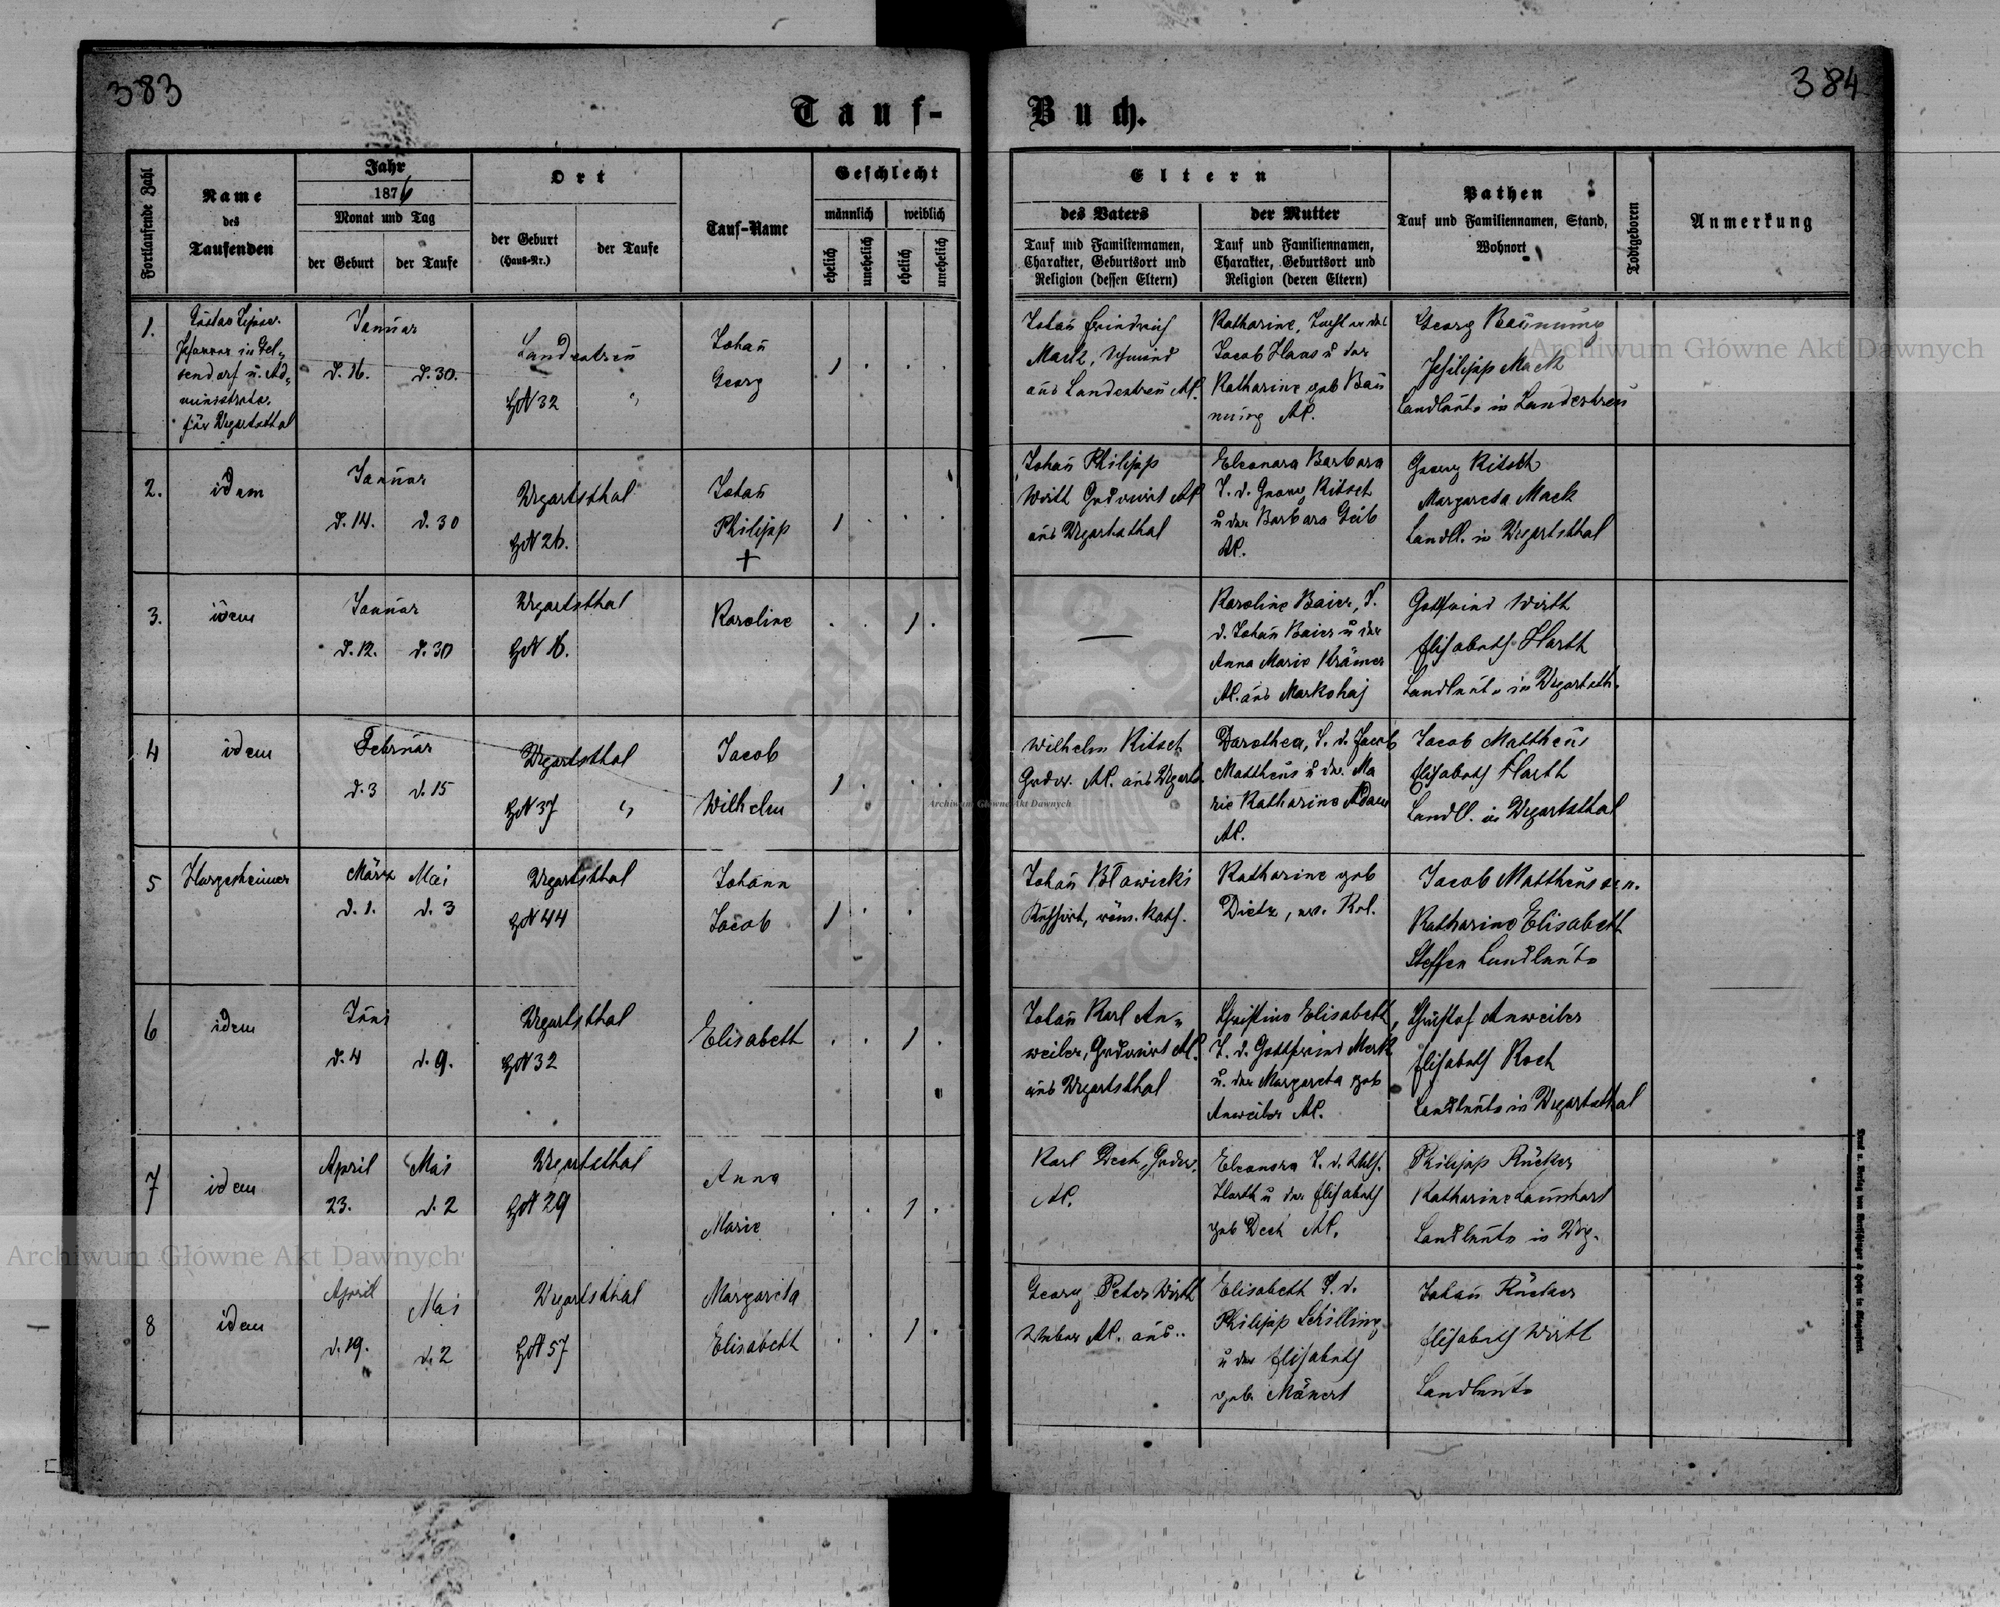 383
384
Tauf-Buch.
Fortlaufende Zahl
Name
des
Taufenden
Jahr
1876
Monat und Tag
der Geburt
der Taufe
Ort
der Geburt
(Haus-Nr.)
der Taufe
Tauf-Name
Geschlecht
männlich
weiblich
ehelich
unehelich
ehelich
unehelich
Eltern
des Vaters
Tauf und Familiennamen,
Charakter, Geburtsort und
Religion (dessen Eltern)
der Mutter
Tauf und Familiennamen,
Charakter, Geburtsort und
Religion (deren Eltern)
Pathen
Tauf und Familiennamen, Stand,
Wohnort
Todtgeboren
Anmerkung
1.
Pfarrer in Gel-
sendorf u. Ad-
ministrator
für Ugartsthal
Januar
d. 16.
d. 30.
Landestreu
HN 32
"
Johañ
Georg
1
Johañ Friedrich
Mack, Schmied
aus Landestreu AC.
Katharine, Tochter des
Jacob Haas u der
Katharine geb Bau
nung AC.
Georg Baunung
Philipp Mack
Landleute in Landestreu
2.
idem
Januar
d. 14.
d. 30
Ugartsthal
HN 26.
Johañ
Philipp
+
1
Johañ Philipp
Wirth Grdwirt AC
aus Ugartsthal
Eleonara Barbara
T. d. Georg Kitsch
u der Barbara Geib
AC.
Georg Kitsch
Margareta Mack
Landl. in Ugartsthal
3.
idem
Januar
d. 12.
d. 30
Ugartsthal
HN 16.
Karoline
1
—
Karoline Baier, T.
d. Johañ Baier u der
Anna Marie Krämer
AC. aus
Gottfried Wirth
Elisabeth Harth
Landleute in Ugartsth.
4
idem
Februar
d. 3
d. 15
Ugartsthal
HN 37
"
Jacob
Wilhelm
1
Wilhelm Kitsch
Grdw. AC. aus Ugarts
Darothea, T. d. Jacob
Mattheus u der Ma
rie Katharine Adam
AC.
Jacob Mattheus
Elisabeth Harth
Landl. in Ugartsthal
5
Hargesheimer
März
Mai
d. 1.
d. 3
Ugartsthal
HN 44
Johann
Jacob
1
Johañ
röm. kath.
Katharine geb
Dietz, ev. Rel.
Jacob Mattheus sen.
Katharine Elisabeth
Steffen Landleute
6
idem
Juni
d. 4
d. 9.
Ugartsthal
HN 32
Elisabeth
1
Johañ Karl An-
weiler, Grdwirt AC.
aus Ugartsthal
Christine Elisabeth,
T. d. Gottfried Merk
u. der Margareta geb
Anweiler AC.
Christof Anweiler
Elisabeth Koch
Landleute in Ugartsthal
7
idem
April
Mai
23.
d. 2
Ugartsthal
HN 29
Anna
Marie
1
Karl Dech, Grdw.
AC.
Eleonora T. d.
Harth u der Elisabeth
geb Dech AC.
Philipp Rücker
Katharine Launhart
Landleute in Ug.
8
idem
April
Mai
d. 19.
d. 2
Ugartsthal
HN 57
Margareta
Elisabeth
1
Georg Peter Wirth
Weber AC. aus "
Elisabeth T. d.
Philipp Schilling
u der Elisabeth
geb. Mänert
Johañ Rücker
Elisabeth Wirth
Landleute
Archiwum Główne Akt Dawnych
Archiwum Główne Akt Dawnych
Archiwum Główne Akt Dawnych